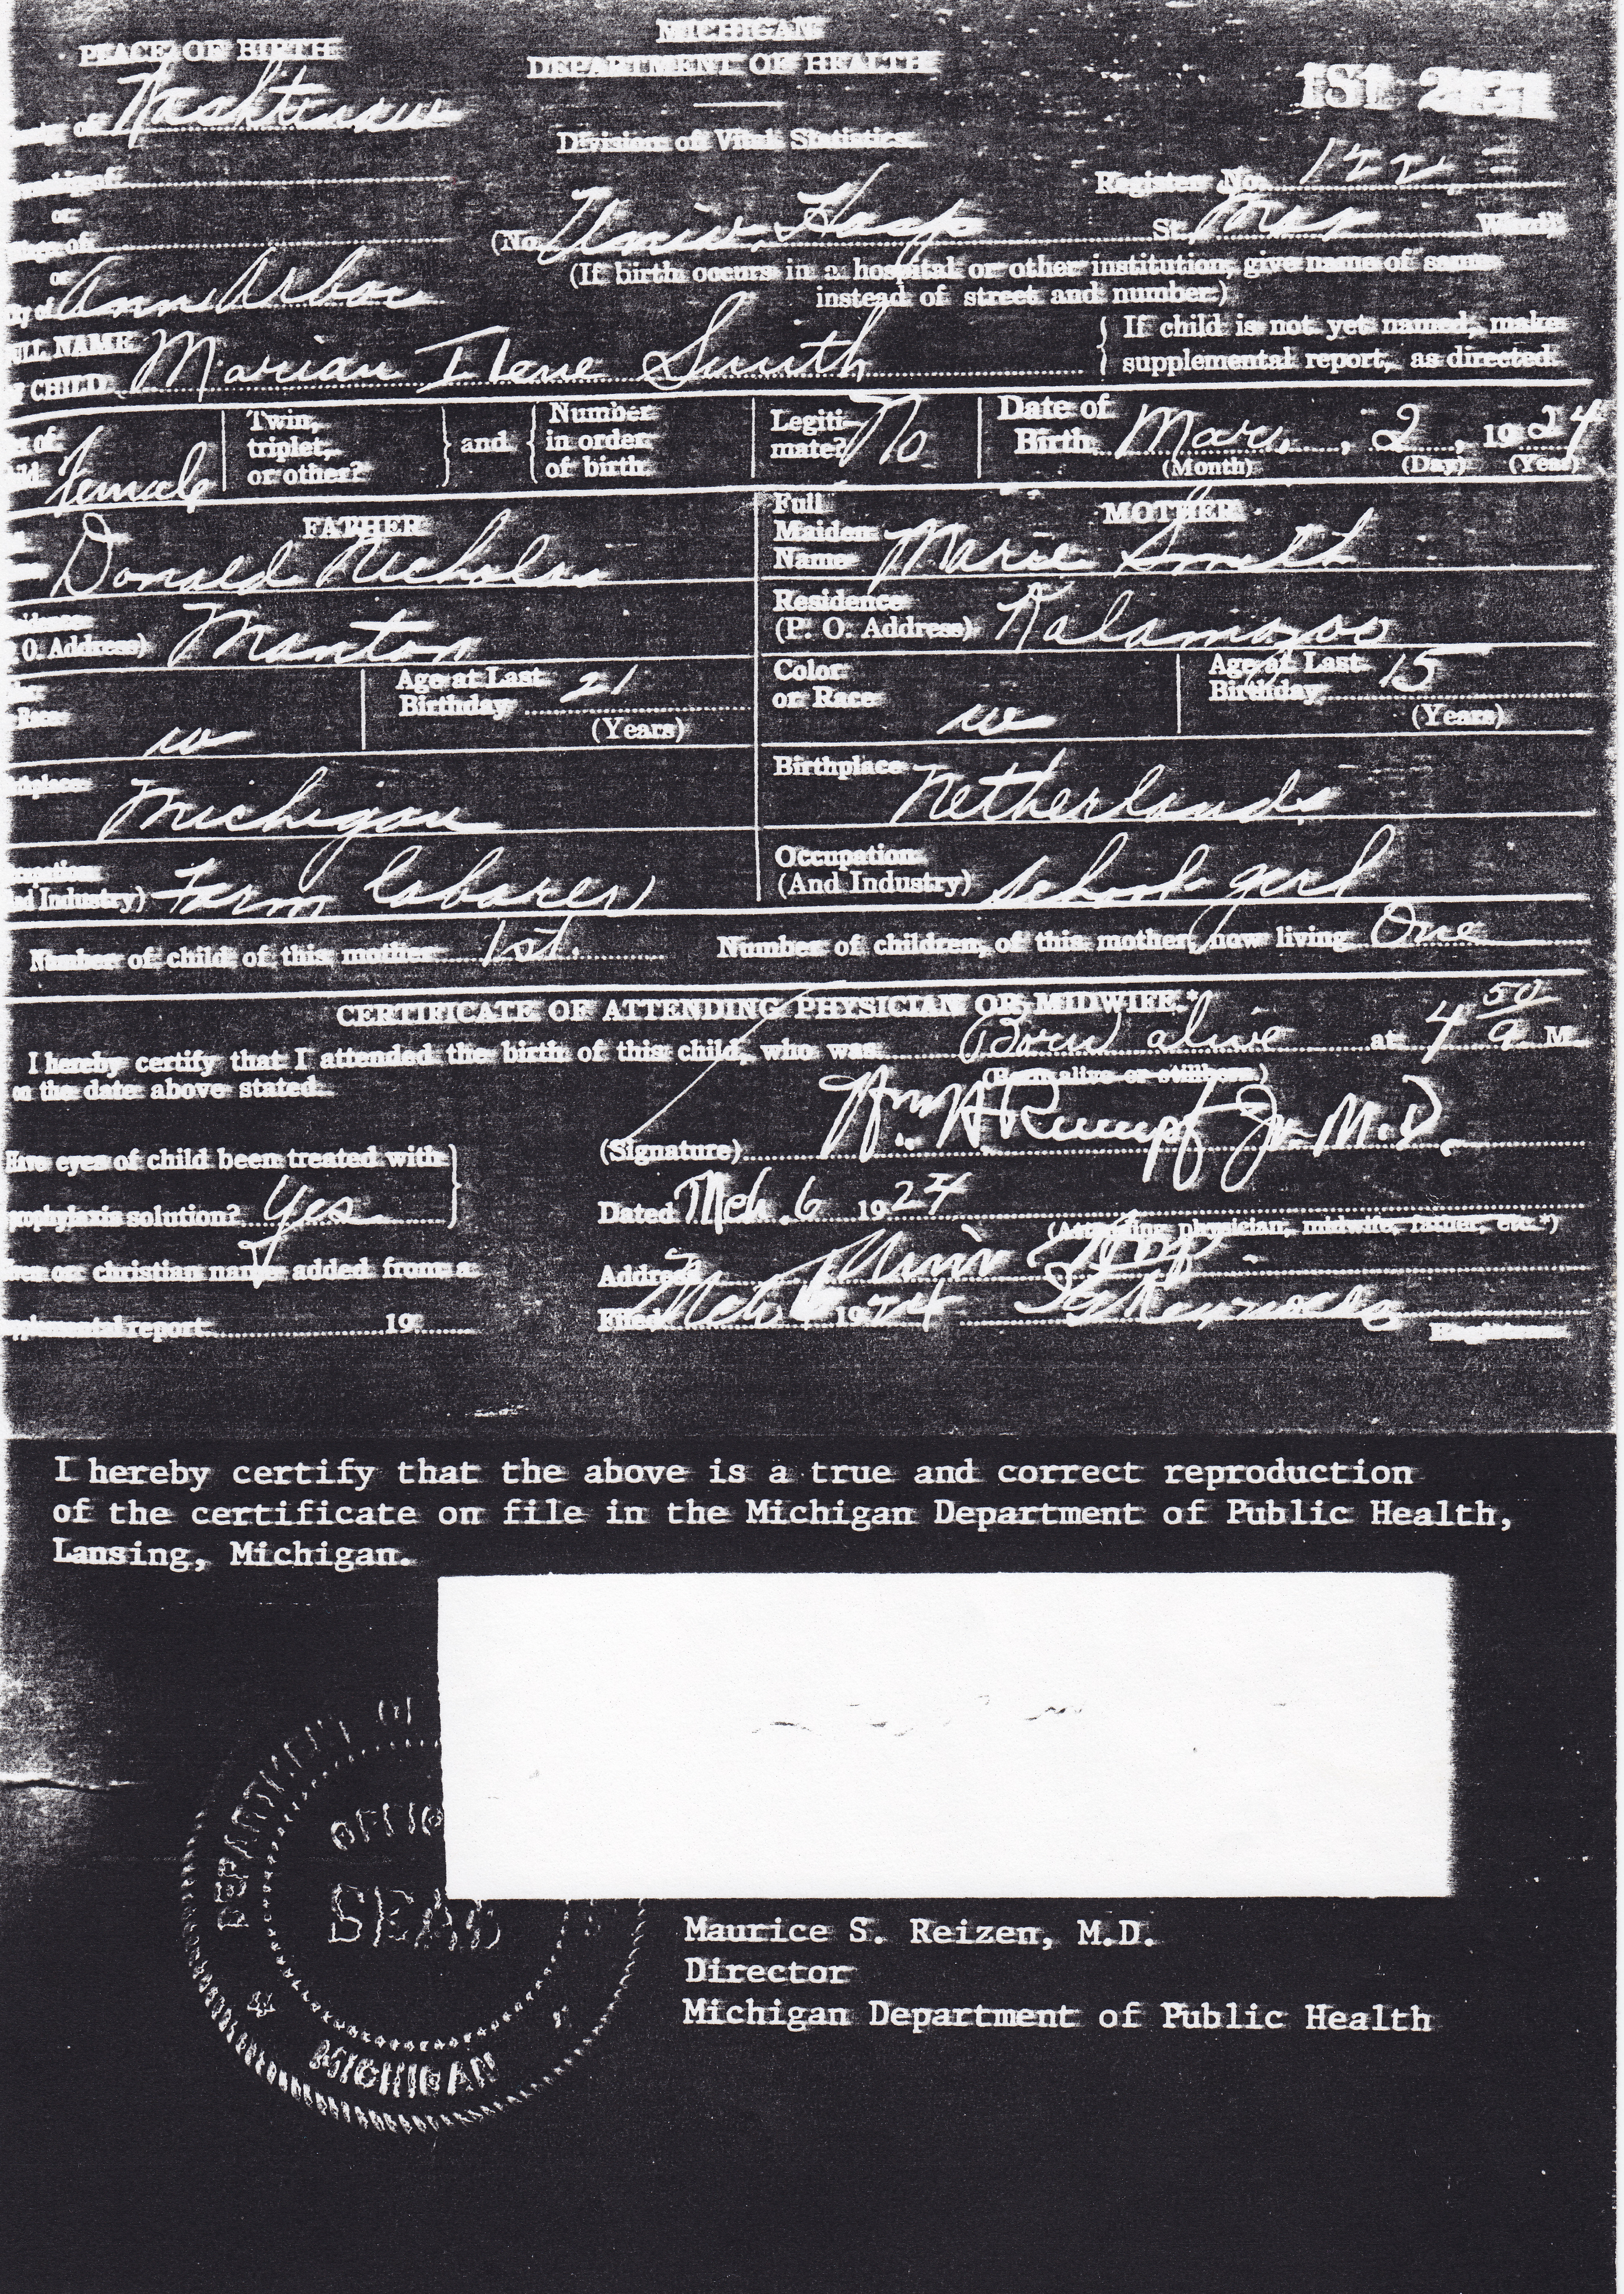 PLACE OF BIRTH
MICHIGAN
DEPARTMENT OF HEALTH
Division of Vital Statistics
Washtenaw
Register No. 122
(No. Univ. Hosp St., Ward)
(If birth occurs in a hospital or other institution, give name of same
instead of street and number.)
Ann Arbor
FULL NAME
OF CHILD Marian Ilene Smith
If child is not yet named, make
supplemental report, as directed.
Female
Twin,
triplet,
or other?
and
Number
in order
of birth
Legiti-
mate? No
Date of
Birth Mar. , 2 , 1924
(Month) (Day) (Year)
FATHER
Donald Nicholas
MOTHER
Full
Maiden
Name Marie Smith
O. Address) Manton
Residence
(P. O. Address) Kalamazoo
Race w
Age at Last
Birthday 21
(Years)
Color
or Race w
Age at Last
Birthday 15
(Years)
Michigan
Birthplace Netherlands
Industry) Farm laborer
Occupation
(And Industry) school girl
Number of child of this mother 1st. Number of children, of this mother, now living One
CERTIFICATE OF ATTENDING PHYSICIAN OR MIDWIFE.*
I hereby certify that I attended the birth of this child, who was Born alive at 4 50 a M.
on the date above stated.
(Born alive or stillborn)
(Signature) Wm H. Rumpf Jr. M.D.
Have eyes of child been treated with
prophylaxis solution? Yes
Dated Mch. 6 1924
(Attending physician, midwife, father, etc.*)
christian name added from a
Address Univ Hosp
supplemental report 19
Filed Mch 6 1924
Registrar
I hereby certify that the above is a true and correct reproduction
of the certificate on file in the Michigan Department of Public Health,
Lansing, Michigan.
DEPARTMENT OF
OFFIC
SEAL
MICHIGAN
Maurice S. Reizen, M.D.
Director
Michigan Department of Public Health